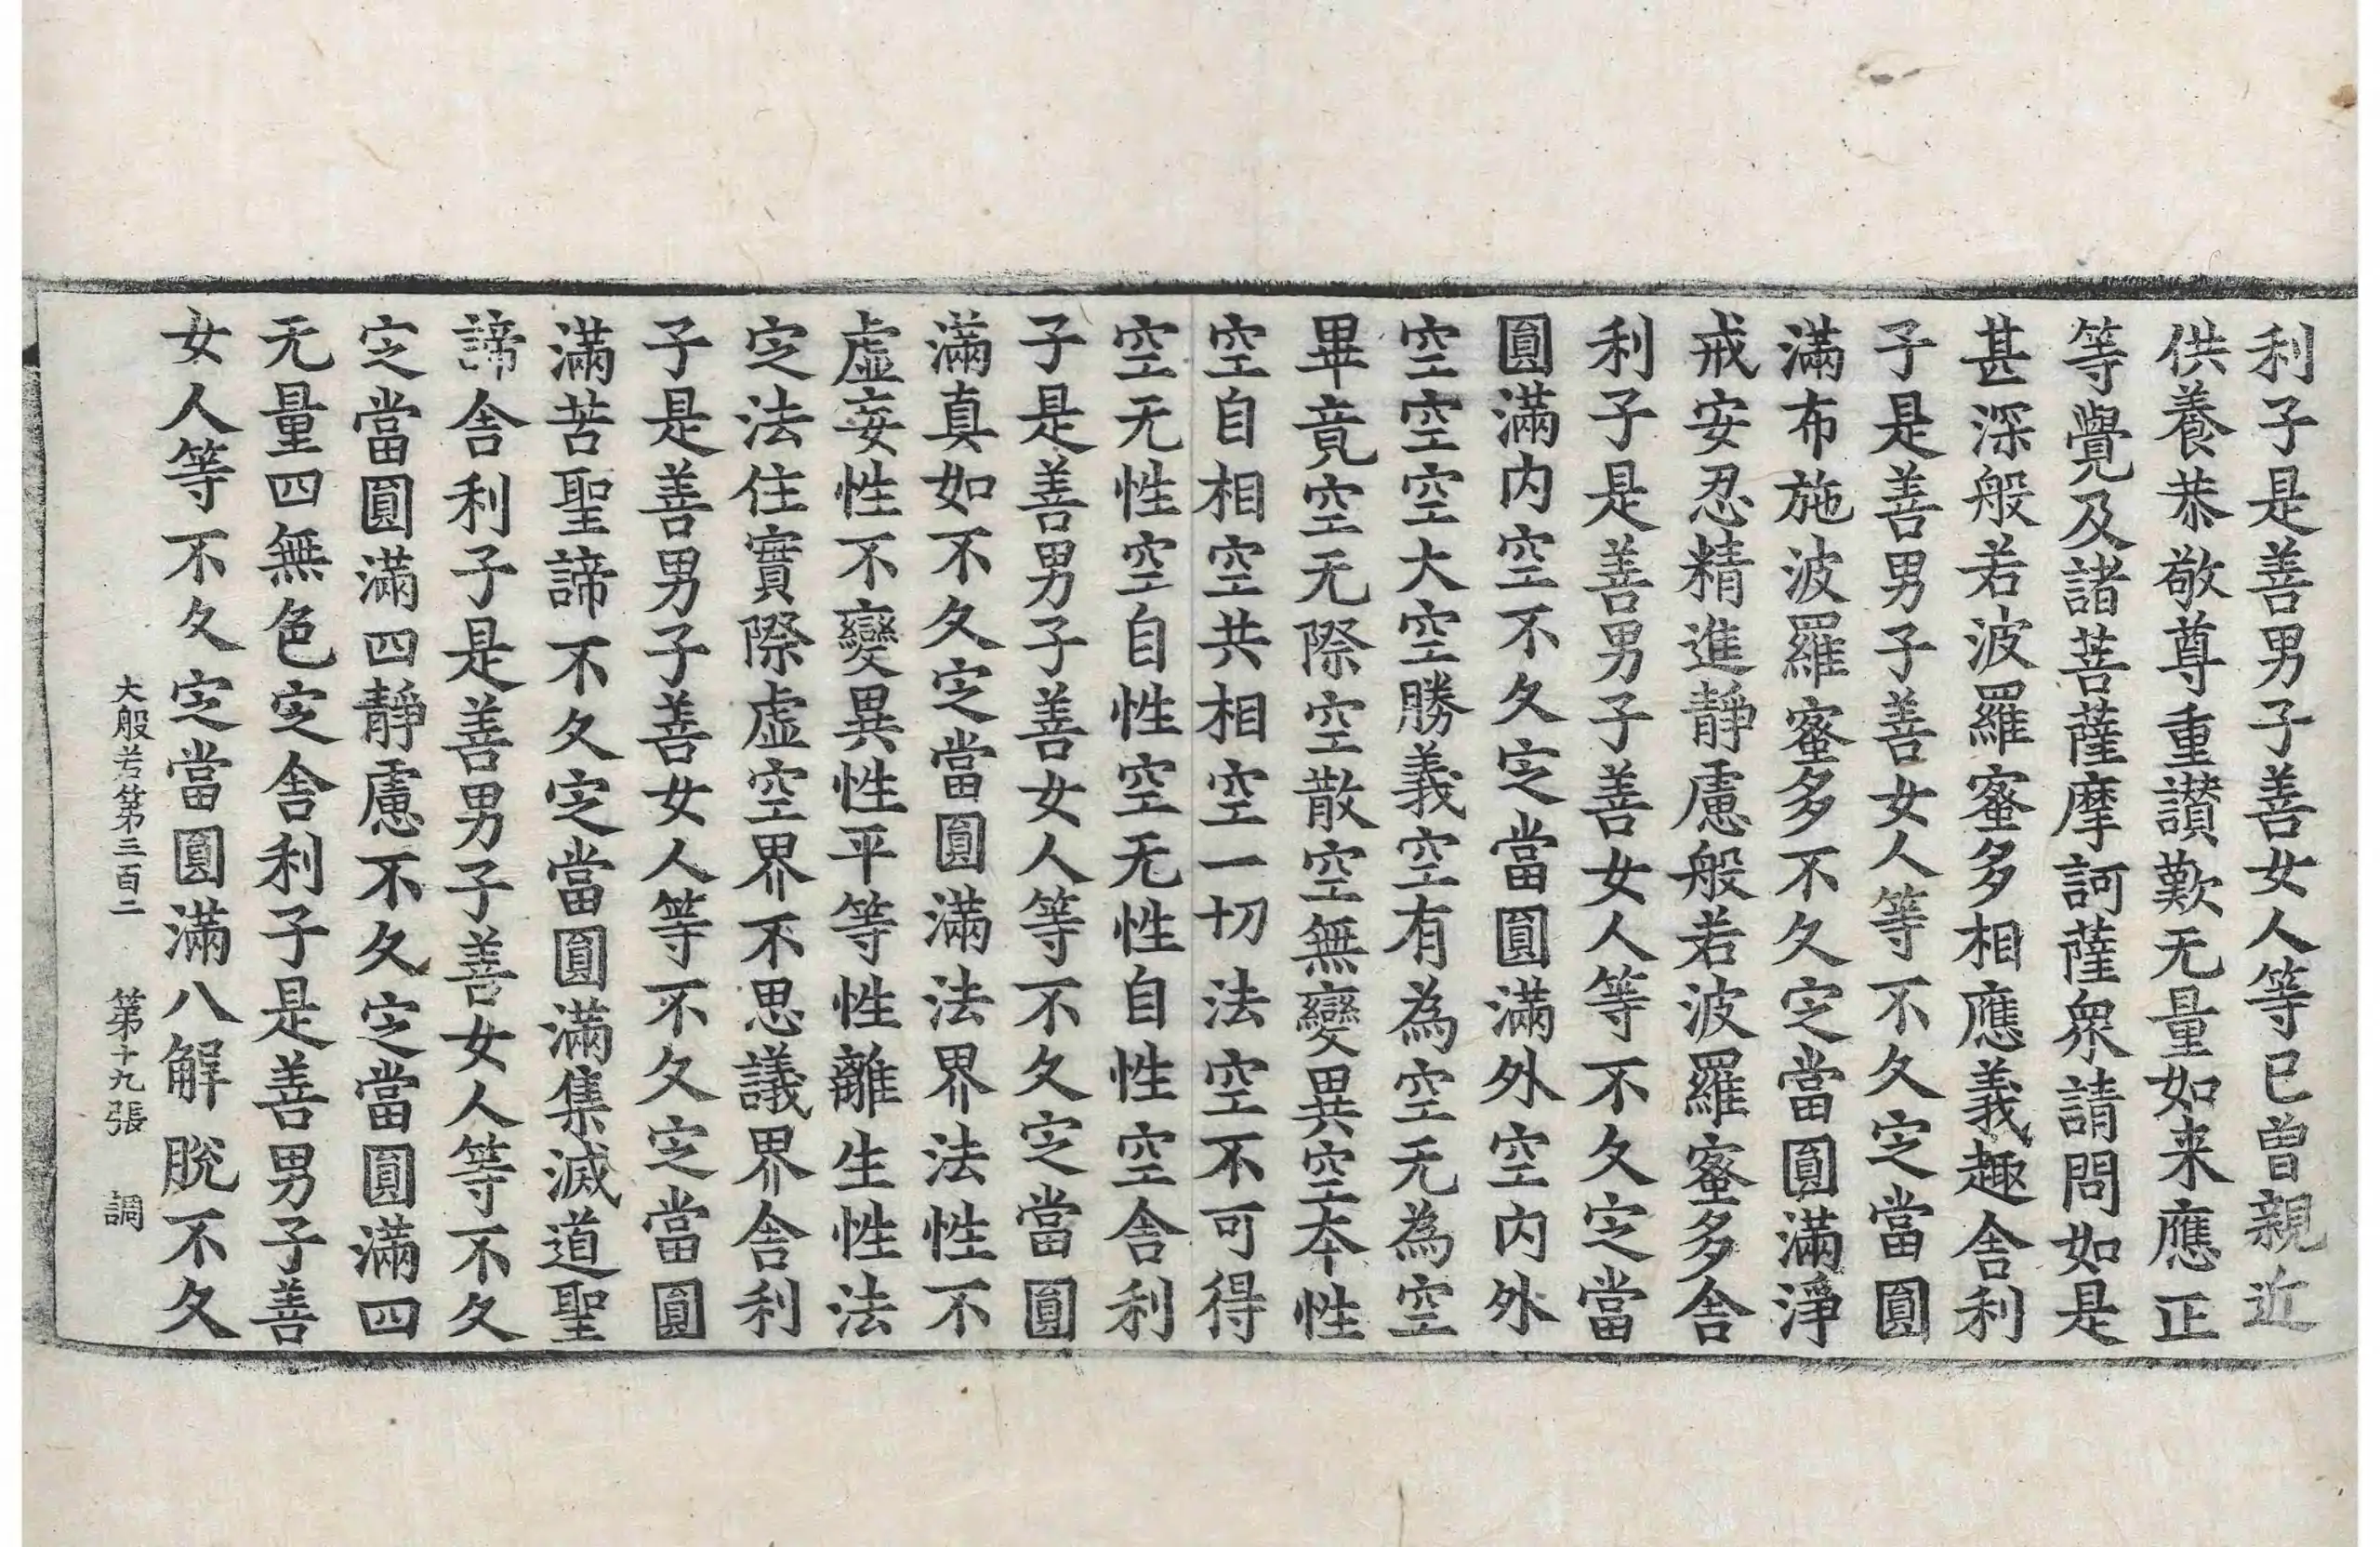 利子是善男子善女人等已曾親近
供養恭敬尊重讃歎无量如来應正
等覺及諸菩薩摩訶薩衆請問如是
甚深般若波羅蜜多相應義趣舍利
子是善男子善女人等不久定當圓
滿布施波羅蜜多不久定當圓滿淨
戒安忍精進靜慮般若波羅蜜多舍
利子是善男子善女人等不久定當
圓滿内空不久定當圓滿外空内外
空空空大空勝義空有為空无為空
畢竟空无際空散空無變異空本性
空自相空共相空一切法空不可得
空无性空自性空无性自性空舍利
子是善男子善女人等不久定當圓
滿真如不久定當圓滿法界法性不
虛妄性不變異性平等性離生性法
定法住實際虛空界不思議界舍利
子是善男子善女人等不久定當圓
滿苦聖諦不久定當圓滿集滅道聖
諦舍利子是善男子善女人等不久
定當圓滿四靜慮不久定當圓滿四
无量四無色定舍利子是善男子善
女人等不久定當圓滿八解脫不久
大般若第三百二　第十九張　調